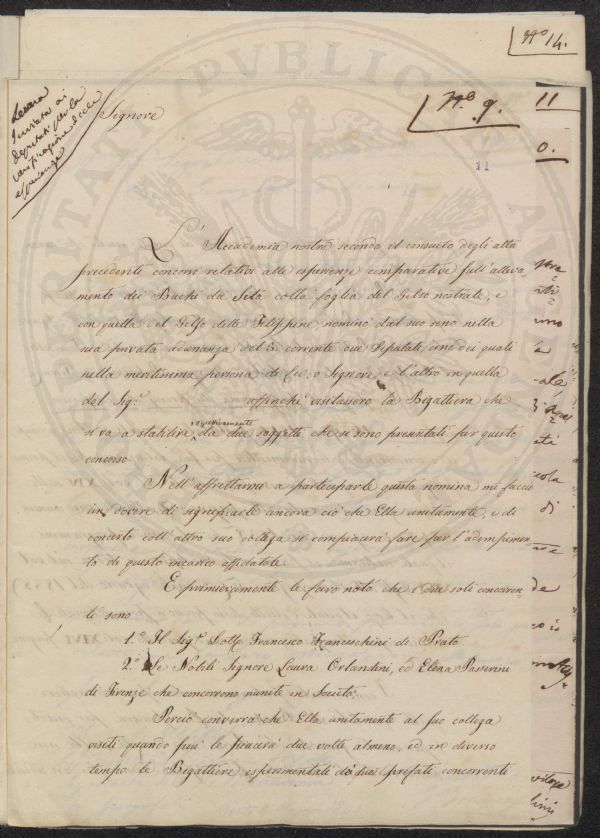 No 14.
No 9.
11
0.
11
Lettera
Inviata ai
deputati per la
verificazione delle
esperienze
Signore
L'Accademia nostra secondo il consueto degli altri
precedenti concorsi relativi alle esperienze comparative sull'alleva-
mento dei Bachi da Seta colla foglia del Gelso nostrale, e
con quella del Gelso delle Filippine nominò dal suo seno nella
sua privata adunanza del 5. corrente due Deputati, uno dei quali
nella meritissima persona di Lei, o Signore e l'altro in quella
del Sig.r affinchè visitassero la Bigattiera che
si va a stabilire rispettivamente da due soggetti che si sono presentati per questo
concorso.
Nell'affrettarmi a parteciparle questa nomina mi faccio
un dovere di significarle ancora ciò che Ella unitamente, e di
concerto coll'altro suo collega si compiacerà fare per l'adempimen-
to di questo incarico affidatole
E primieramente le farò noto che i due soli concorren-
ti sono
1.o Il Sig.r Dott.e Francesco Franceschini di Prato
2.o Le Nobili Signore Laura Orlandini, ed Elena Passerini
di Firenze che concorrono riunite in Società.
Perciò converrà che Ella unitamente al suo collega
visiti quando più le piacerà due volte almeno, ed in diverso
tempo le Bigattiere esperimentali dei due prefati concorrenti